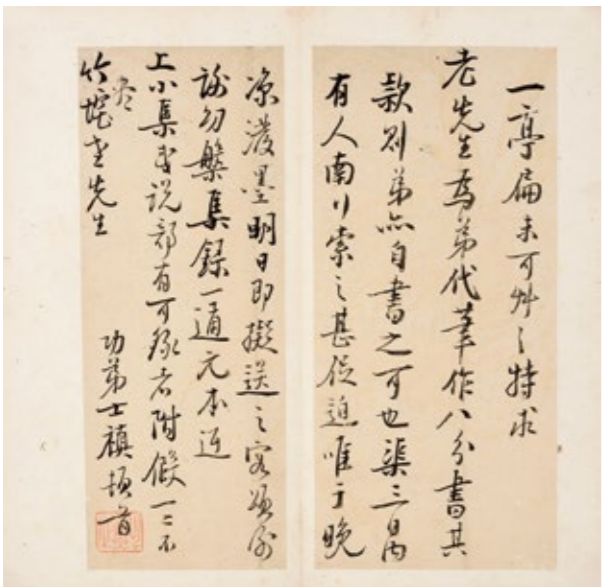 一亭扁未可草々特求
老先生為弟代筆作八分書其
款則弟亦自書之可也渠三日內
有人南行索之甚促迫唯于晚
涼潑墨明日即擬送之容頌
謝勿槃集錄一通元本返
上小集或說部有可錄者附假一二不
盡
竹垞老先生
功弟士禛頓首